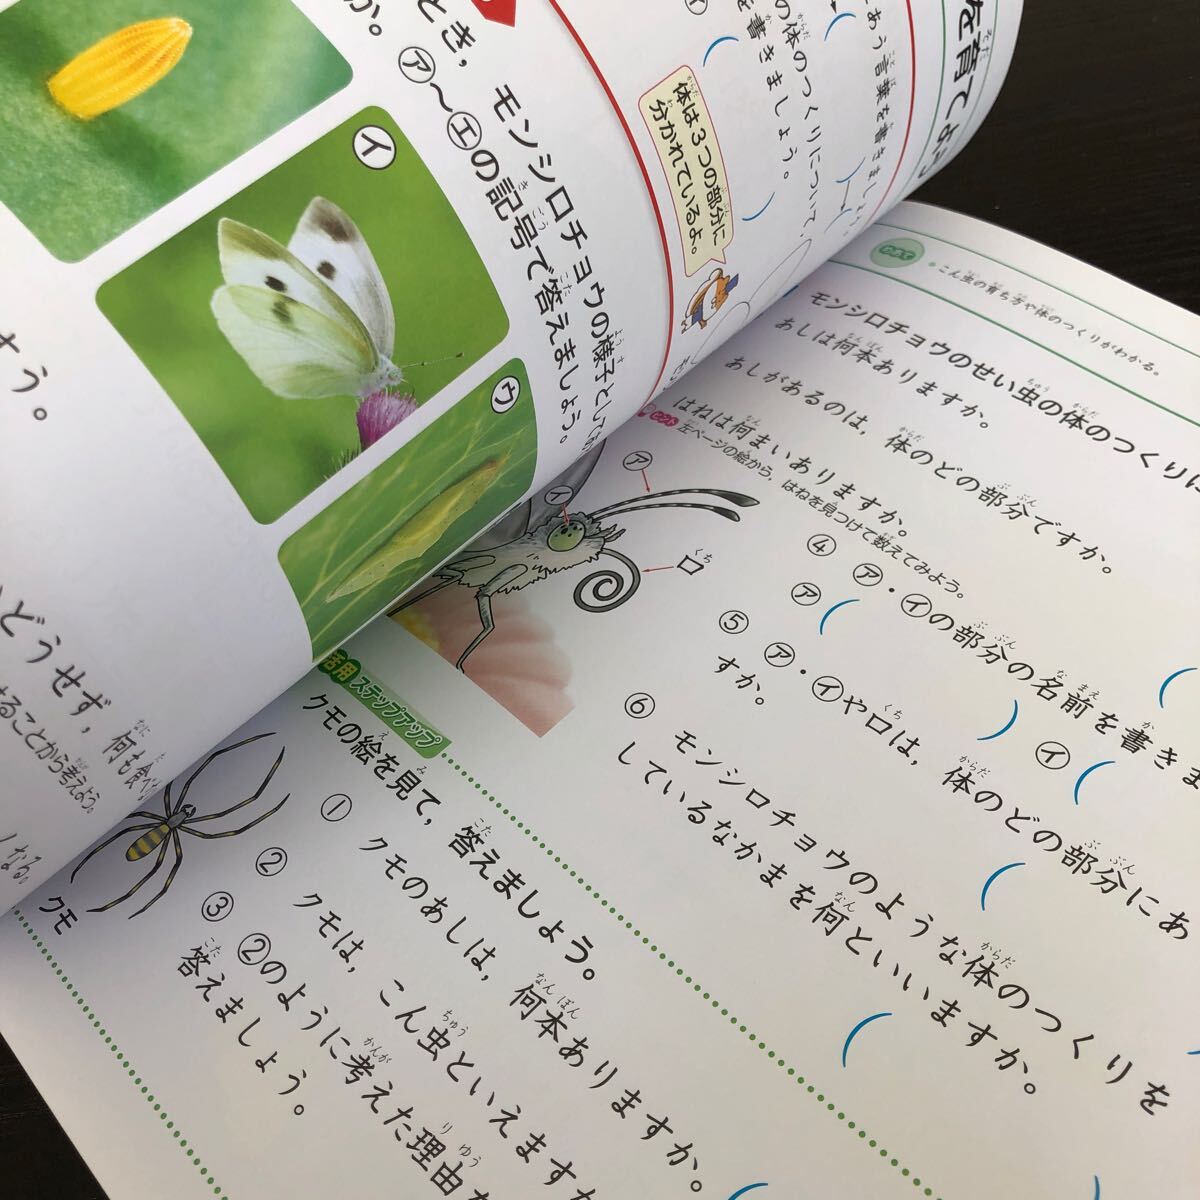 を育てよう
あう言葉を書きましょう。
の体のつくりについて
を書きましょう。
体は3つの部分に
分かれているよ。
とき，モンシロチョウの様子として
か。㋐～㋓の記号で答えましょう。
㋑
㋒
すう。
どうせず，何も食べ
ることから考えよう。
なる。
めあて
こん虫の育ち方や体のつくりがわかる。
モンシロチョウのせい虫の体のつくりに
あしは何本ありますか。
あしがあるのは，体のどの部分ですか。
はねは何まいありますか。
ヒント 左ページの絵から，はねを見つけて数えてみよう。
④ ㋐・㋑の部分の名前を書きま
㋐（ ） ㋑（
⑤ ㋐・㋑や口は，体のどの部分にあ
すか。
⑥ モンシロチョウのような体のつくりを
しているなかまを何といいますか。
㋐
㋑
口
活用 ステップアップ
クモの絵を見て，答えましょう。
① クモのあしは，何本ありますか。
② クモは，こん虫といえますか
③ ②のように考えた理由
答えましょう。
クモ